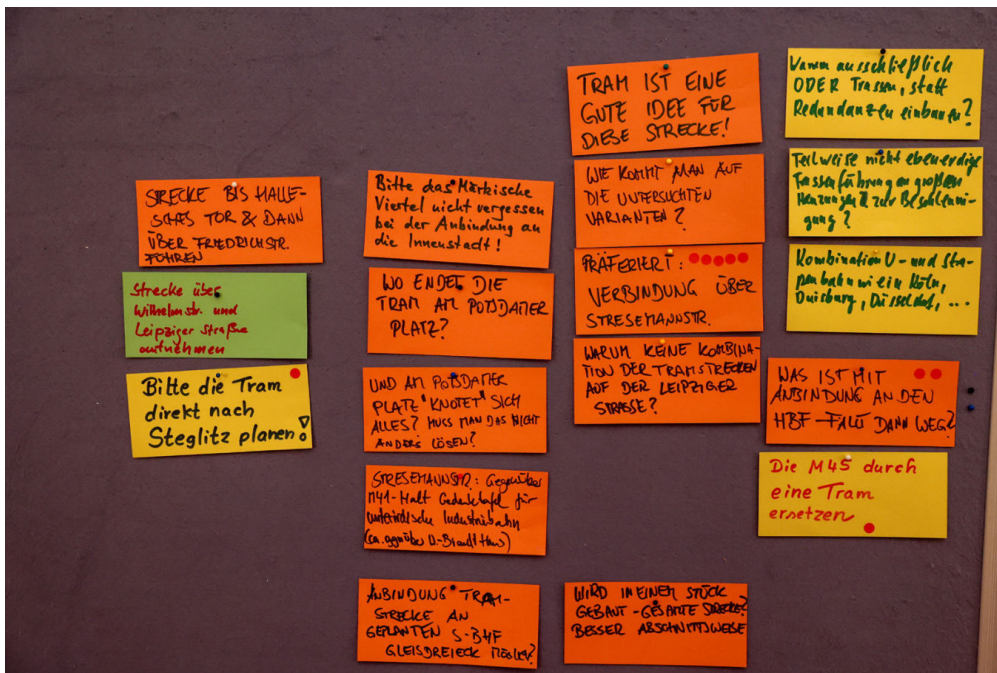 STRECKE BIS HALLE-
SCHES TOR & DANN
ÜBER FRIEDRICHSTR.
FÜHREN
Strecke über
Wilhelmstr. und
Leipziger Straße
aufnehmen
Bitte die Tram
direkt nach
Steglitz planen!
Bitte das Märkische
Viertel nicht vergessen
bei der Anbindung an
die Innenstadt!
WO ENDET DIE
TRAM AM POTSDAMER
PLATZ?
UND AM POTSDAMER
PLATZ "KNOTET" SICH
ALLES? MUSS MAN DAS NICHT
ANDERS LÖSEN?
STRESEMANNSTR.: Gegenüber
M41-Halt Gedenktafel für
unterirdische Industriebahn
(ca. ggnüber W-Brandt Haus)
ANBINDUNG TRAM-
STRECKE AN
GEPLANTEN S-BHF
GLEISDREIECK MÖGLICH?
TRAM IST EINE
GUTE IDEE FÜR
DIESE STRECKE!
WIE KOMMT MAN AUF
DIE UNTERSUCHTEN
VARIANTEN?
PRÄFERIERT:
VERBINDUNG ÜBER
STRESEMANNSTR.
WARUM KEINE KOMBINA-
TION DER TRAMSTRECKEN
AUF DER LEIPZIGER
STRASSE?
WIRD IN EINEM STÜCK
GEBAUT - GESAMTE STRECKE?
BESSER ABSCHNITTSWEISE
Warum ausschließlich
ODER Trassen, statt
Redundanzen einbauen?
Teilweise nicht ebenerdige
Trassenführung an großen
Kreuzungen zur Beschleuni-
gung?
Kombination U- und Stra-
ßenbahn wie in Köln,
Duisburg, Düsseldorf, ...
WAS IST MIT
ANBINDUNG AN DEN
HBF - FÄLLT DANN WEG?
Die M45 durch
eine Tram
ersetzen